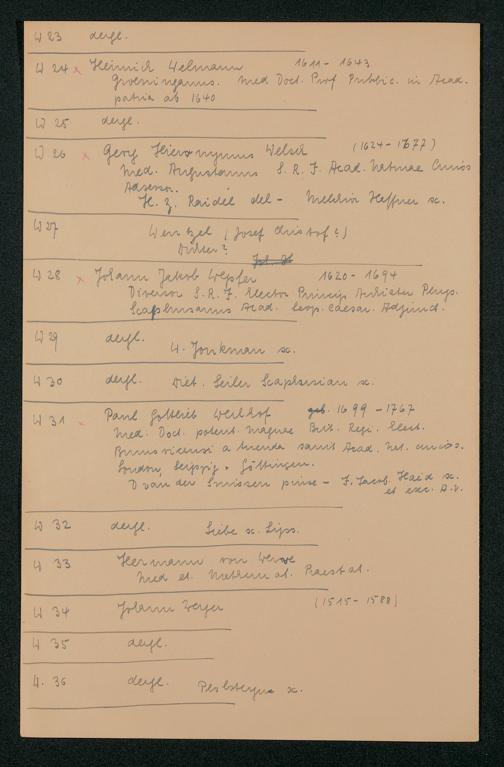 W 23 dergl.
W 24 x Heinrich Welmann 1611 - 1643
Groeninganus. Med Doct. Prof Public. in Acad.
patria ab 1640
W 25 dergl.
W 26 x Georg Hieronymus Welsch (1624-1677)
Med. Augustanus S. R. I. Acad. Naturae Curios
Adsessor.
H. z. Raidel del - Melchior Haffner sc.
W 27 Wentzel (Josef Christof?)
Dichter?
W 28 x Johann Jakob Wepfer 1620 - 1694
S. R. I. Elector Princip Archiater
Scaphusanus Acad. Leop. Caesar. Adjunct.
W 29 dergl. Jonkman sc.
W 30 dergl. Diet. Seiler Scaphusian sc.
W 31 x Paul Gottlieb Werlhof geb. 1699 - 1767
Med. Doct. potent. Magnae Brit. Regi. Elect.
Brunsvicensi a tuenda sanit Acad. Nat. curios.
London, Leipzig, Göttingen.
D van der Smissen pinx - J. Jacob. Haid sc.
et exc. A. V.
W 32 dergl. Liebe sc. Lips.
W 33 Hermann von
Med et. Mathemat. Praestat.
W 34 Johann Weyer (1515 - 1588)
W 35 dergl.
W. 36 dergl. sc.